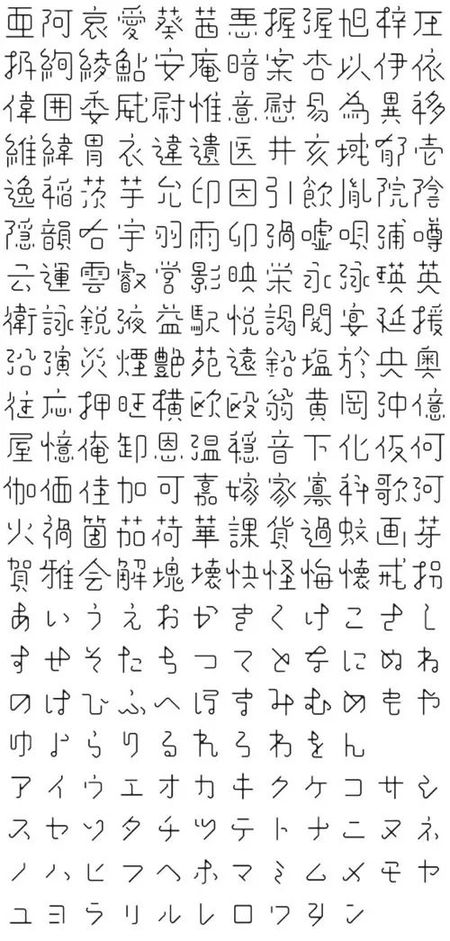 亜阿哀愛葵茜悪握渥旭梓圧
扱絢綾鮎安庵暗案杏以伊依
偉囲委威尉惟意慰易為異移
維緯胃衣違遺医井亥域郁壱
逸稲茨芋允印因引飲胤院陰
隠韻右宇羽雨卯渦嘘唄浦噂
云運雲叡営影映栄永泳瑛英
衛詠鋭液益駅悦謁閲宴延援
沿演炎煙艶苑遠鉛塩於央奥
往応押旺横欧殴翁黄岡沖億
屋憶俺卸恩温穏音下化仮何
伽価佳加可嘉嫁家寡科歌河
火禍箇茄荷華課貨過蚊画芽
賀雅会解塊壊快怪悔懐戒拐
あいうえおかきくけこさし
すせそたちつてとなにぬね
のはひふへほまみむめもや
ゆよらりるれろわをん
アイウエオカキクケコサシ
スセソタチツテトナニヌネ
ノハヒフヘホマミムメモヤ
ユヨラリルレロワヲン